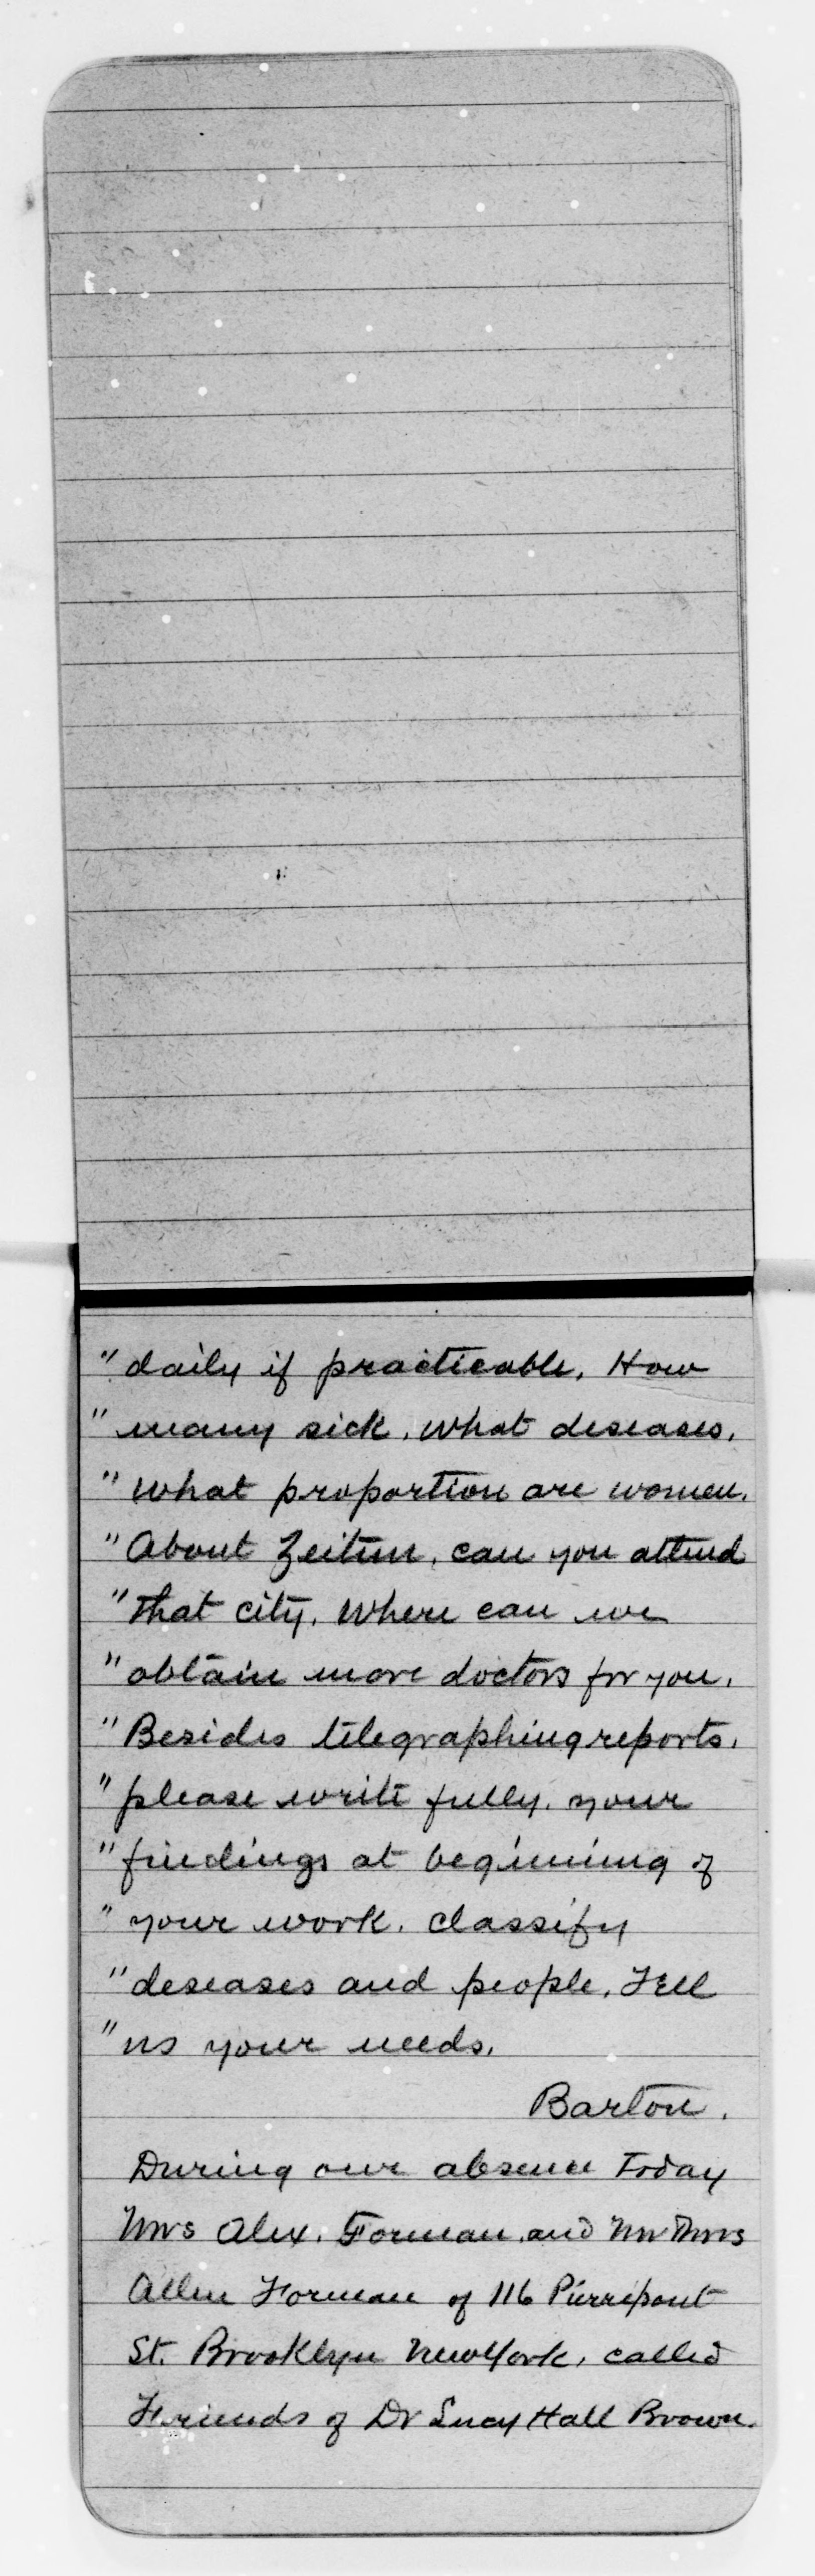 " daily if practicable. How
" many sick. what deseases.
" What proportion are women.
" About Zeitun, can you attend
" that city. Where can we
" obtain more doctors for you.
" Besides telegraphing reports.
" please write fully. your
" findings at beginning of
" your work. classify
" deseases and people. Tell
" us your needs.
Barton.
During our absence today
Mrs Alex. Forman. and Mr Mrs
Allen Forman of 116 Pierrepont
St. Brooklyn New York. called
Friends of Dr Lucy Hall Brown.